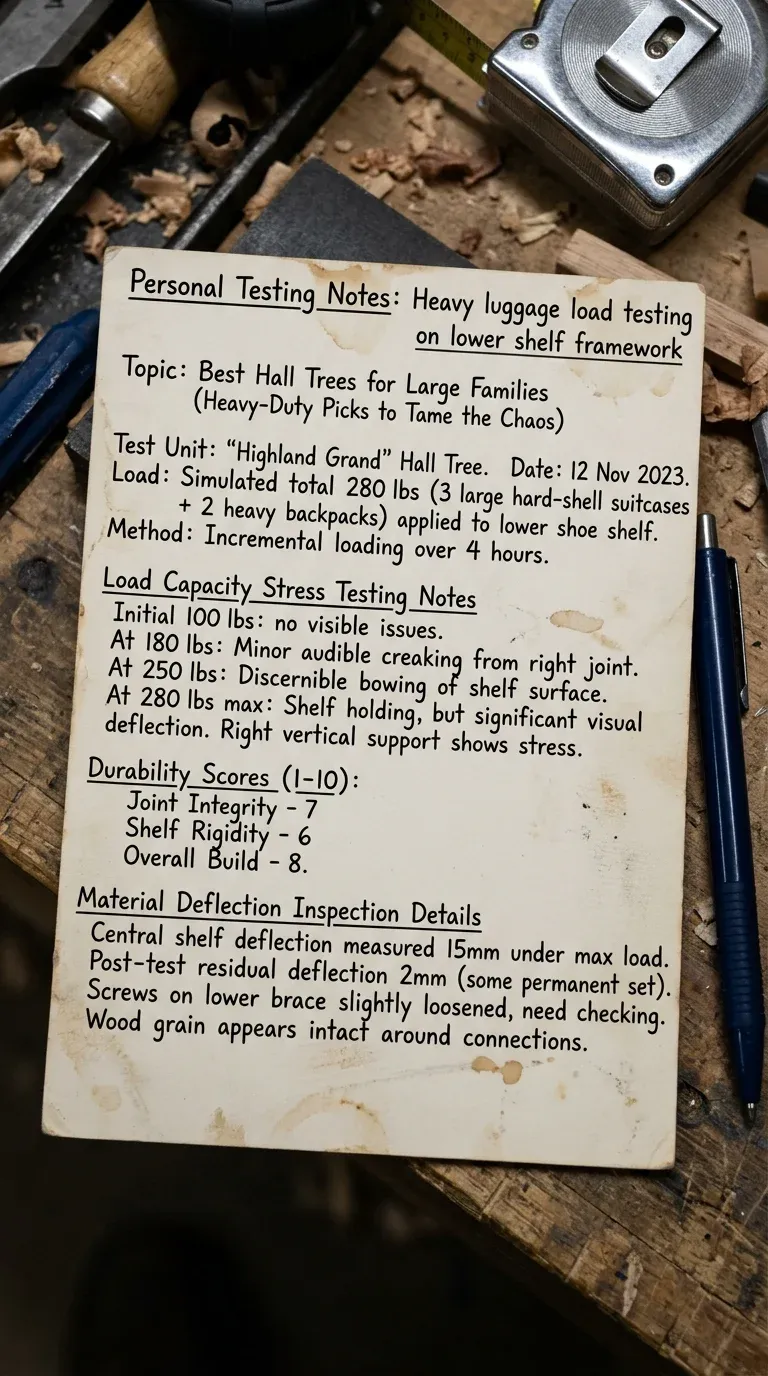 Personal Testing Notes: Heavy luggage load testing
on lower shelf framework
Topic: Best Hall Trees for Large Families
(Heavy-Duty Picks to Tame the Chaos)
Test Unit: “Highland Grand” Hall Tree. Date: 12 Nov 2023.
Load: Simulated total 280 lbs (3 large hard-shell suitcases
+ 2 heavy backpacks) applied to lower shoe shelf.
Method: Incremental loading over 4 hours.
Load Capacity Stress Testing Notes
Initial 100 lbs: no visible issues.
At 180 lbs: Minor audible creaking from right joint.
At 250 lbs: Discernible bowing of shelf surface.
At 280 lbs max: Shelf holding, but significant visual
deflection. Right vertical support shows stress.
Durability Scores (1-10):
Joint Integrity - 7
Shelf Rigidity - 6
Overall Build - 8.
Material Deflection Inspection Details
Central shelf deflection measured 15mm under max load.
Post-test residual deflection 2mm (some permanent set).
Screws on lower brace slightly loosened, need checking.
Wood grain appears intact around connections.